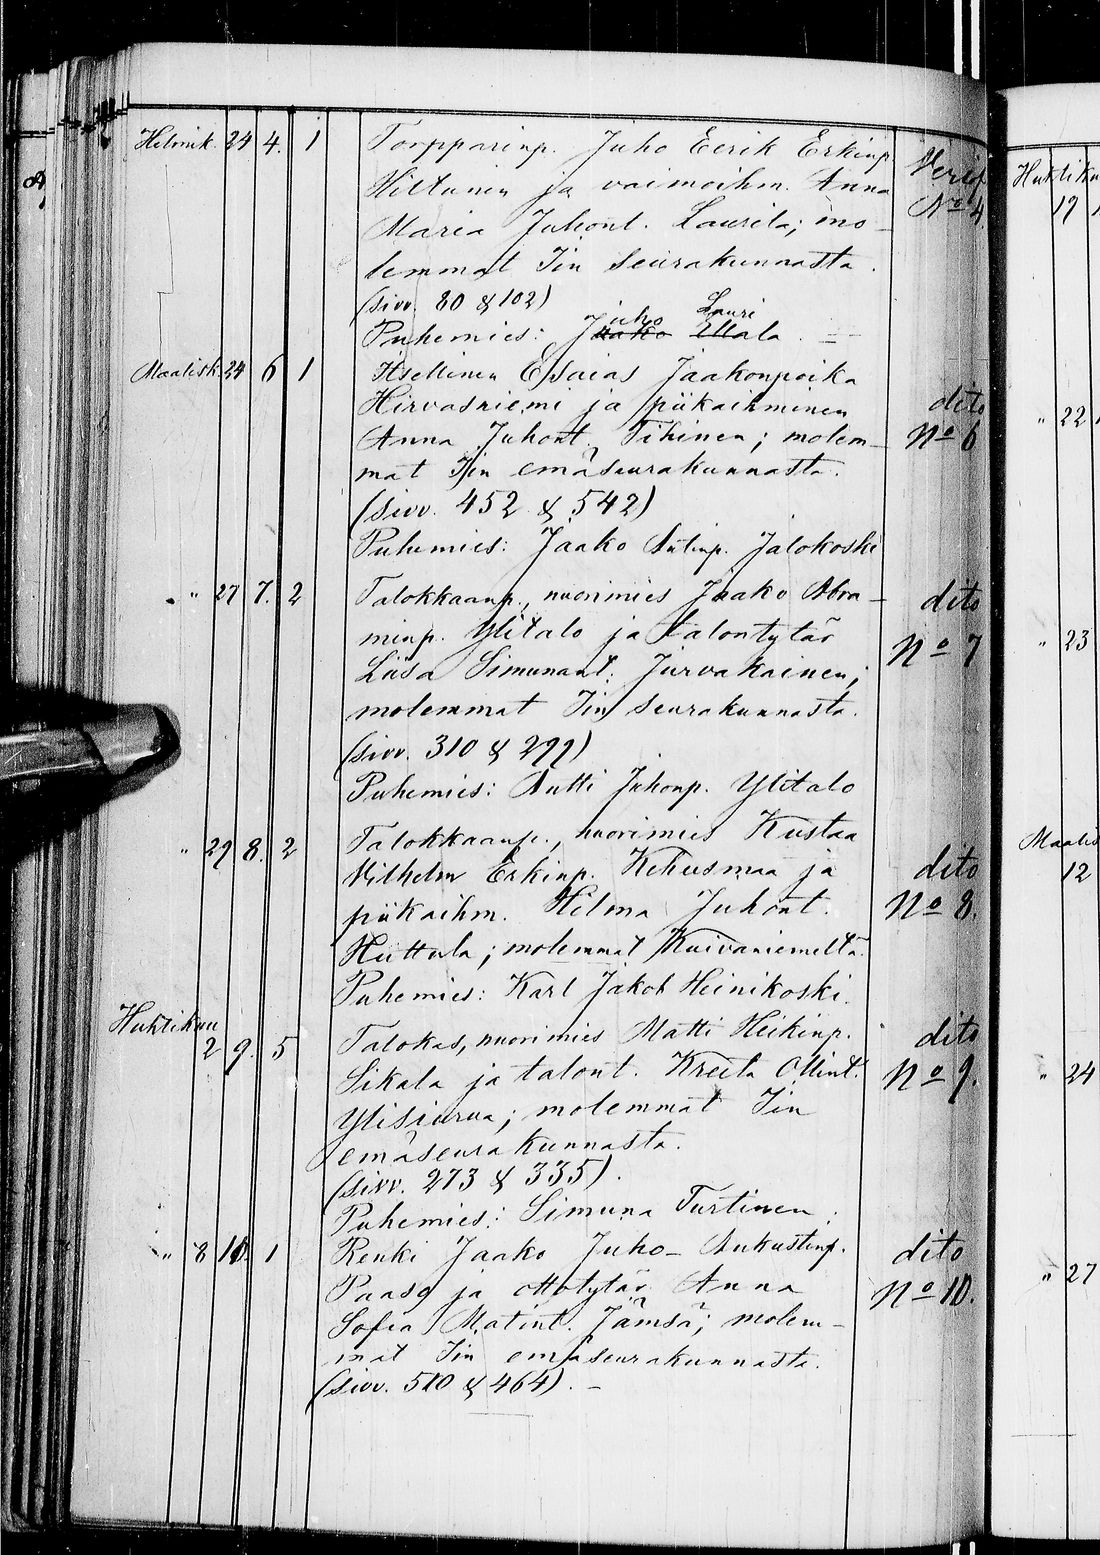 Helmik. 24 4. 1 Torpparinp. Juho Eerik Erkinp. Verif.
Hiltunen ja vaimoihm. Anna No 4.
Maria Juhont. Laurila; mo-
lemmat Iin seurakunnasta.
(sivv. 80 & 102)
juho Lauri
Puhemies: Jaako Ulala. —
Maalisk. 24 6 1 Itsellinen Esaias Jaakonpoika
Hirvasniemi ja piikaihminen dito
Anna Juhont. Tihinen; molem- No 6
mat Iin emäseurakunnasta.
(sivv. 452 & 542)
Puhemies: Jaako Antinp. Jalokoski
" 27 7. 2 Talokkaanp., nuorimies Jaako Abra- dito
minp. Ylitalo ja talontytär
Liisa Simunant. Jurvakainen; No 7
molemmat Iin seurakunnasta.
(sivv. 310 & 299)
Puhemies: Antti Juhonp. Ylitalo
" 29 8. 2 Talokkaanp., nuorimies Kustaa
Vilhelm Erkinp. Kehusmaa ja dito
piikaihm. Hilma Juhont. No 8.
Huttula; molemmat Kuivaniemeltä.
Puhemies: Karl Jakob Heinikoski.
Huhtikuu
2 9. 5 Talokas, nuorimies Matti Heikinp. dito
Sikala ja talont. Kreeta Ollint. No 9.
Ylisiurua; molemmat Iin
emäseurakunnasta.
(sivv. 273 & 335).
Puhemies: Simuna Turtinen.
" 8 10. 1 Renki Jaako Juho-Aukustinp. dito
Paaso ja ottotytär Anna No 10.
Sofia Matint. Jämsä; molem-
mat Iin emäseurakunnasta.
(sivv. 510 & 464). —
Huhtiku
19
" 22
" 23
Maalis
12
" 24
" 27